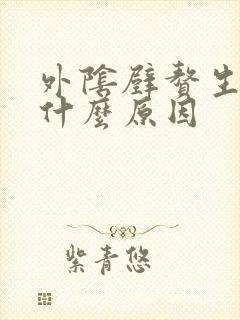 外陰壁贅生
什麼原因
紫青悠